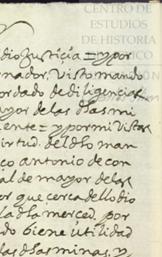 CENTRO DE
ESTUDIOS
DE HISTORIA
dio Justicia = y por
nador, Visto mando
ordado de diligencias
ayor de las dhas mi
ente = y por mi Vistas
irtud. del dho man
co antonio de con
al de mayor de las
por que cerca dello dio
la dha merced. por
do biene utilidad
las dhas minas, y